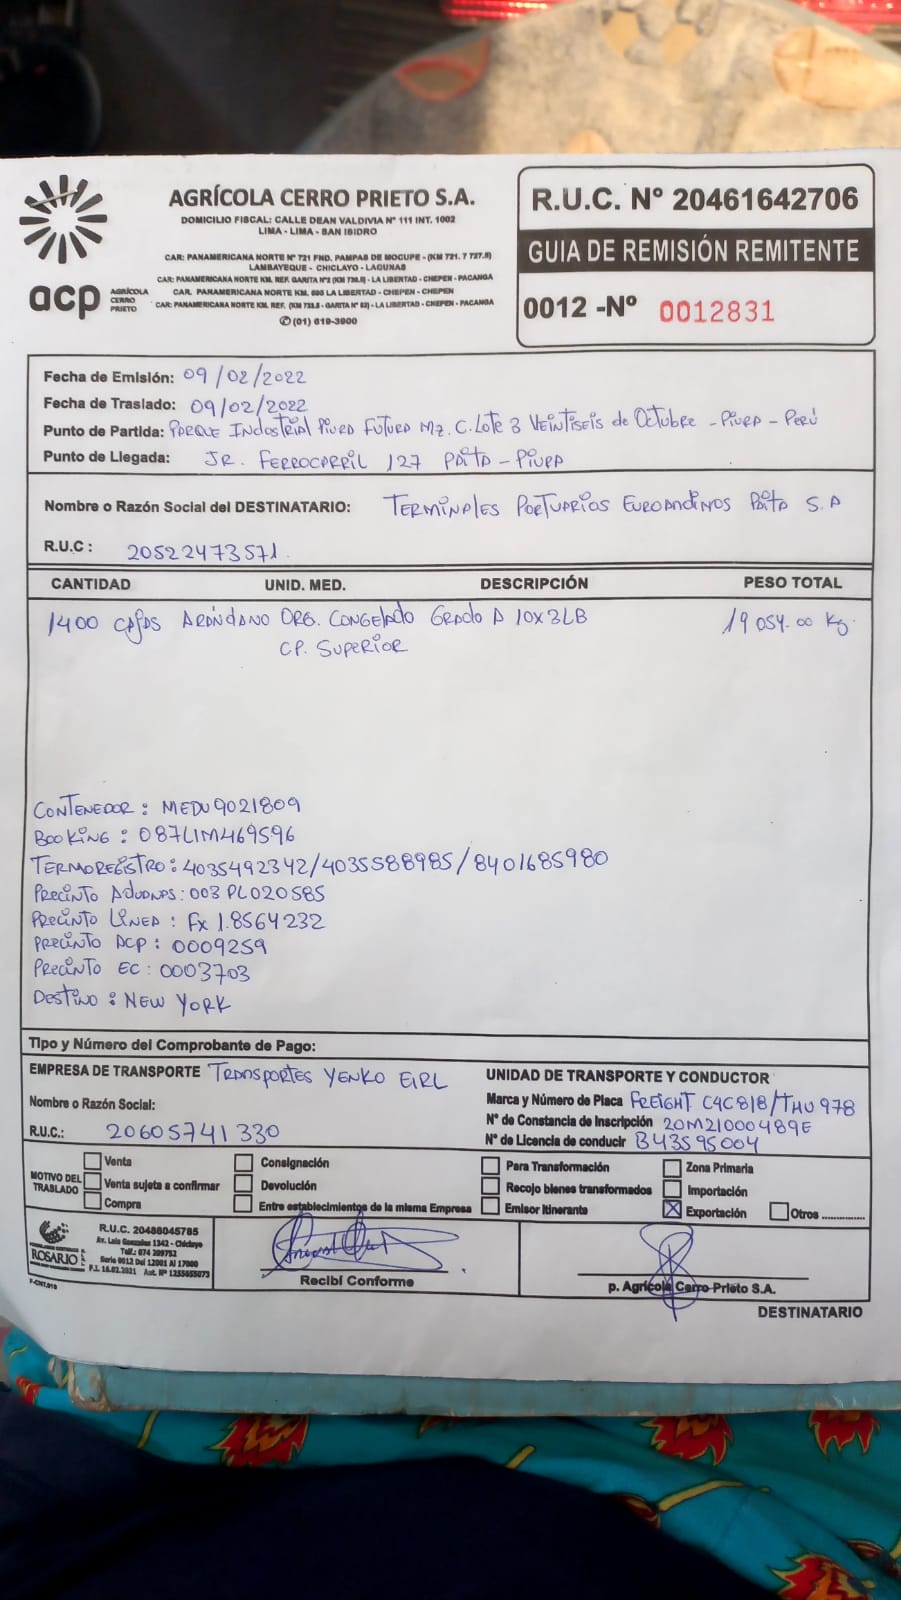 AGRÍCOLA CERRO PRIETO S.A.
DOMICILIO FISCAL: CALLE DEAN VALDIVIA Nº 111 INT. 1002
LIMA - LIMA - SAN ISIDRO
CAR: PANAMERICANA NORTE Nº 721 FND. PAMPAS DE MOCUPE - (KM 721. 7 727.8)
LAMBAYEQUE - CHICLAYO - LAGUNAS
CAR: PANAMERICANA NORTE KM. REF. GARITA Nº2 (KM 733.8) - LA LIBERTAD - CHEPEN - PACANGA
CAR. PANAMERICANA NORTE KM. 695 LA LIBERTAD - CHEPEN - CHEPEN
CAR: PANAMERICANA NORTE KM. REF. (KM 733.8 - GARITA Nº 83) - LA LIBERTAD - CHEPEN - PACANGA
(01) 619-3900
acp AGRÍCOLA CERRO PRIETO
R.U.C. Nº 20461642706
GUIA DE REMISIÓN REMITENTE
0012 -Nº 0012831
Fecha de Emisión: 09/02/2022
Fecha de Traslado: 09/02/2022
Punto de Partida: PARQUE INDUSTRIAL PIURA FUTURA MZ. C. LOTE 3 VEINTISEIS de OCTUBRE - PIURA - PERÚ
Punto de Llegada: JR. FERROCARRIL 127 PAITA - PIURA
Nombre o Razón Social del DESTINATARIO: TERMINALES PORTUARIOS EUROANDINOS PAITA S.A
R.U.C : 20522473571.
CANTIDAD UNID. MED. DESCRIPCIÓN PESO TOTAL
1400 CAJAS ARANDANO ORG. CONGELADO GRADO A 10X3LB 19 054.00 Kg.
CP. SUPERIOR
CONTENEDOR : MEDU9021809
BOOKING : 087LIM469596
TERMOREGISTRO : 4035492342/4035588985/8401685980
PRECINTO ADUANAS : 003PL020585
PRECINTO LÍNEA : FX 1.8564232
PRECINTO ACP : 0009259
PRECINTO EC : 0003703
DESTINO : NEW YORK
Tipo y Número del Comprobante de Pago:
EMPRESA DE TRANSPORTE TRANSPORTES YENKO EIRL
Nombre o Razón Social:
R.U.C.: 20605741330
UNIDAD DE TRANSPORTE Y CONDUCTOR
Marca y Número de Placa FREIGHT C4C818/THU978
Nº de Constancia de Inscripción 20M21000489E
Nº de Licencia de conducir B43595004
MOTIVO DEL TRASLADO
Venta
Venta sujeta a confirmar
Compra
Consignación
Devolución
Entre establecimientos de la misma Empresa
Para Transformación
Recojo bienes transformados
Emisor Itinerante
Zona Primaria
Importación
X Exportación
Otros .............
ROSARIO
R.U.C. 20488045785
Av. Luis Gonzales 1342 - Chiclayo
Telf.: 074 209752
Serie 0012 Del 12001 Al 17000
F.I. 16.02.2021 Aut. Nº 1255655073
F-CNT.019
Recibí Conforme
p. Agrícola Cerro Prieto S.A.
DESTINATARIO